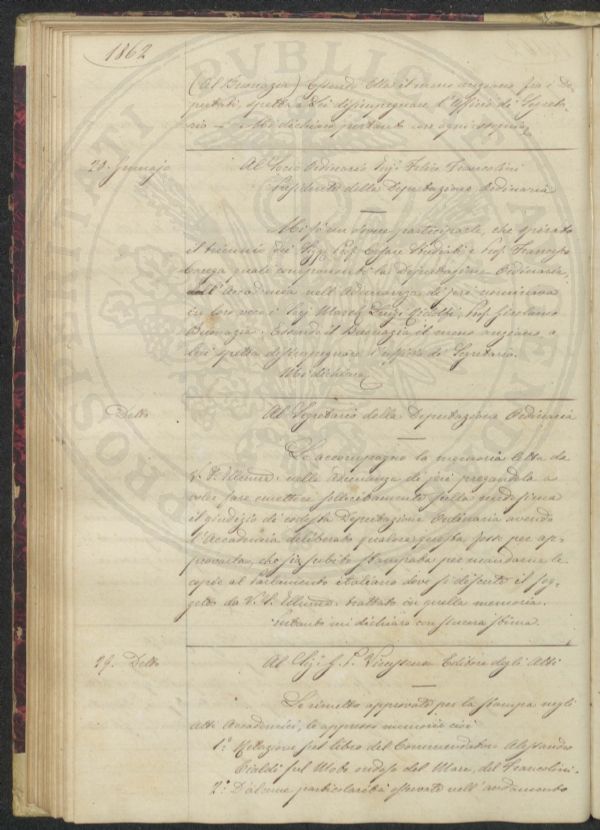 1862
(Al Buonazia) Essendo Ella il meno anziano fra i De-
putati, spetta a Lei disimpegnare l'Uffizio di Segreta-
rio - Mi dichiaro pertanto con ogni stima
28. Gennajo
Al Socio Ordinario Ing. Felice Francolini
Presidente della Deputazione Ordinaria
Mi fo un dovere participarle, che spirato
il triennio dei Sigg. Prof. Cesare Studiati e Prof. Francesco
quali componenti la Deputazione Ordinaria,
l'Accademia nell'Adunanza di jeri nominava
in loro vece i Sigg. March. Luigi Ridolfi, Prof. Girolamo
Buonazia. Essendo il Buonazia il meno anziano a
Lui spetta disimpegnare l'uffizio di Segretario.
Mi dichiaro
Detto
Al Segretario della Deputazione Ordinaria
Le accompagno la memoria letta da
V. S. Illma. nella Adunanza di jeri pregandola a
voler fare emettere sollecitamente sulla medesima
il giudizio di codesta Deputazione Ordinaria avendo
l'Accademia deliberato qualora questa fosse per ap-
provarla, che sia subito stampata per mandarne le
copie al Parlamento italiano dove si discute il sog-
getto da V. S. Illma. trattato in quella memoria.
Intanto mi dichiaro con sincera stima.
29. Detto
Al Sig. G. P. Vieusseux Editore degli Atti
Le rimetto approvate per la stampa negli
atti Accademici, le appresso memorie cioè
1.° Relazione sul libro del Commendatore Alessandro
Cialdi sul Moto ondoso del Mare, del Francolini.
2.° D'alcune particolarità osservate nell'andamento